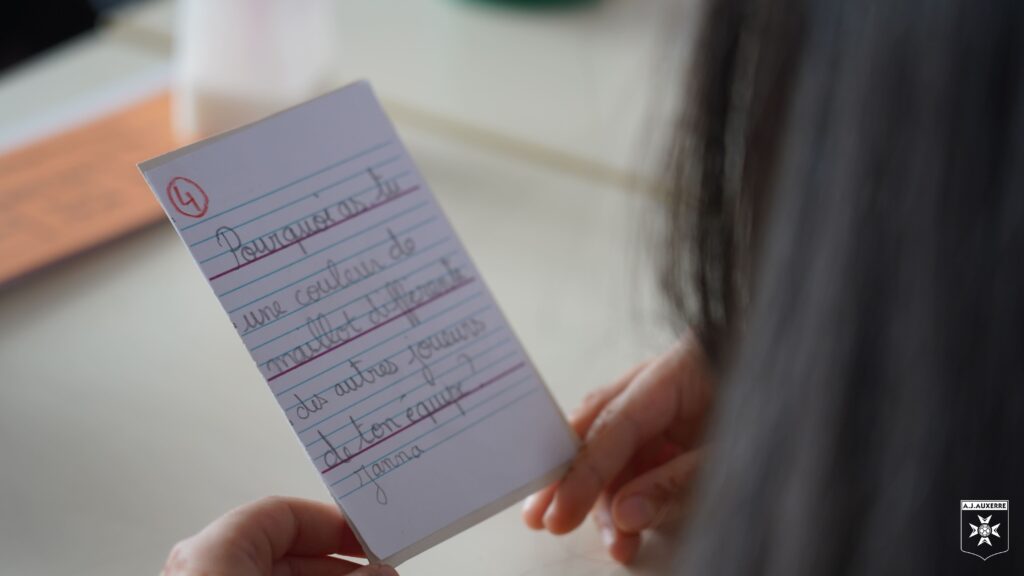 4
Pourquoi as tu
une couleur de
maillot différente
des autres joueurs
de ton équipe ?
Janna
A.J.AUXERRE